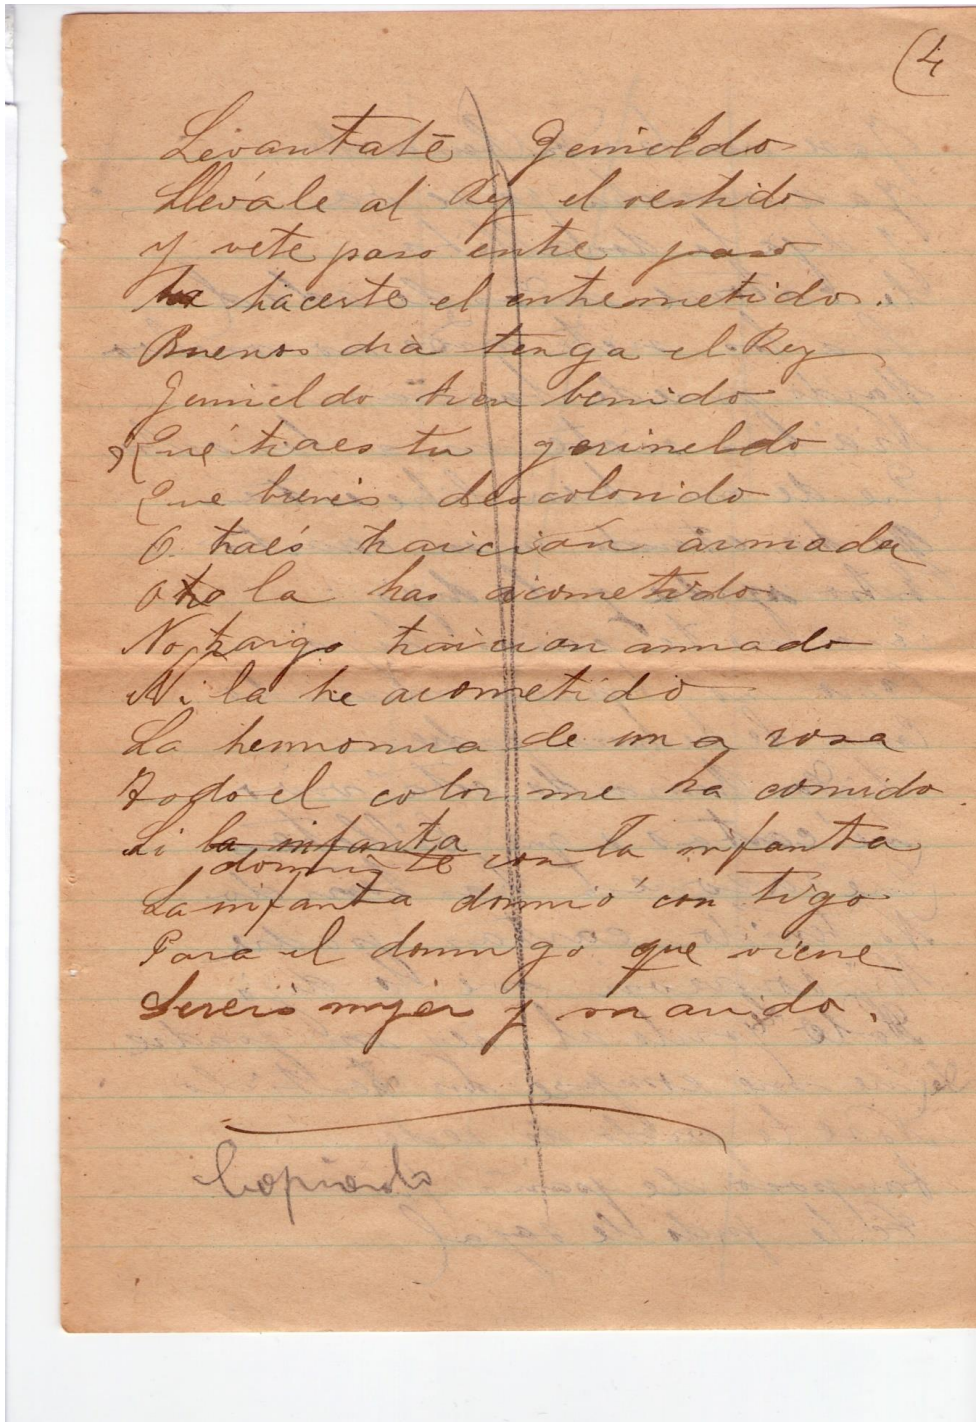 (4
Levantate Gerineldo
Llevále al Rey el vestido
y vete paso entre paso
hacerte el entremetido.
Buenos dia tenga el Rey
Gerineldo bien benido
Qué traes tu gerineldo
Que bienes descolorido
O traés traición armada
O la has acometido
No traigo traicion armado
Ni la he acometido
La hermonura de una rosa
Todo el color me ha comido
Si la infanta
dormiste con la infanta
La infanta dormió con tigo
Para el domingo que viene
Sereis mujer y marido.
Copiado